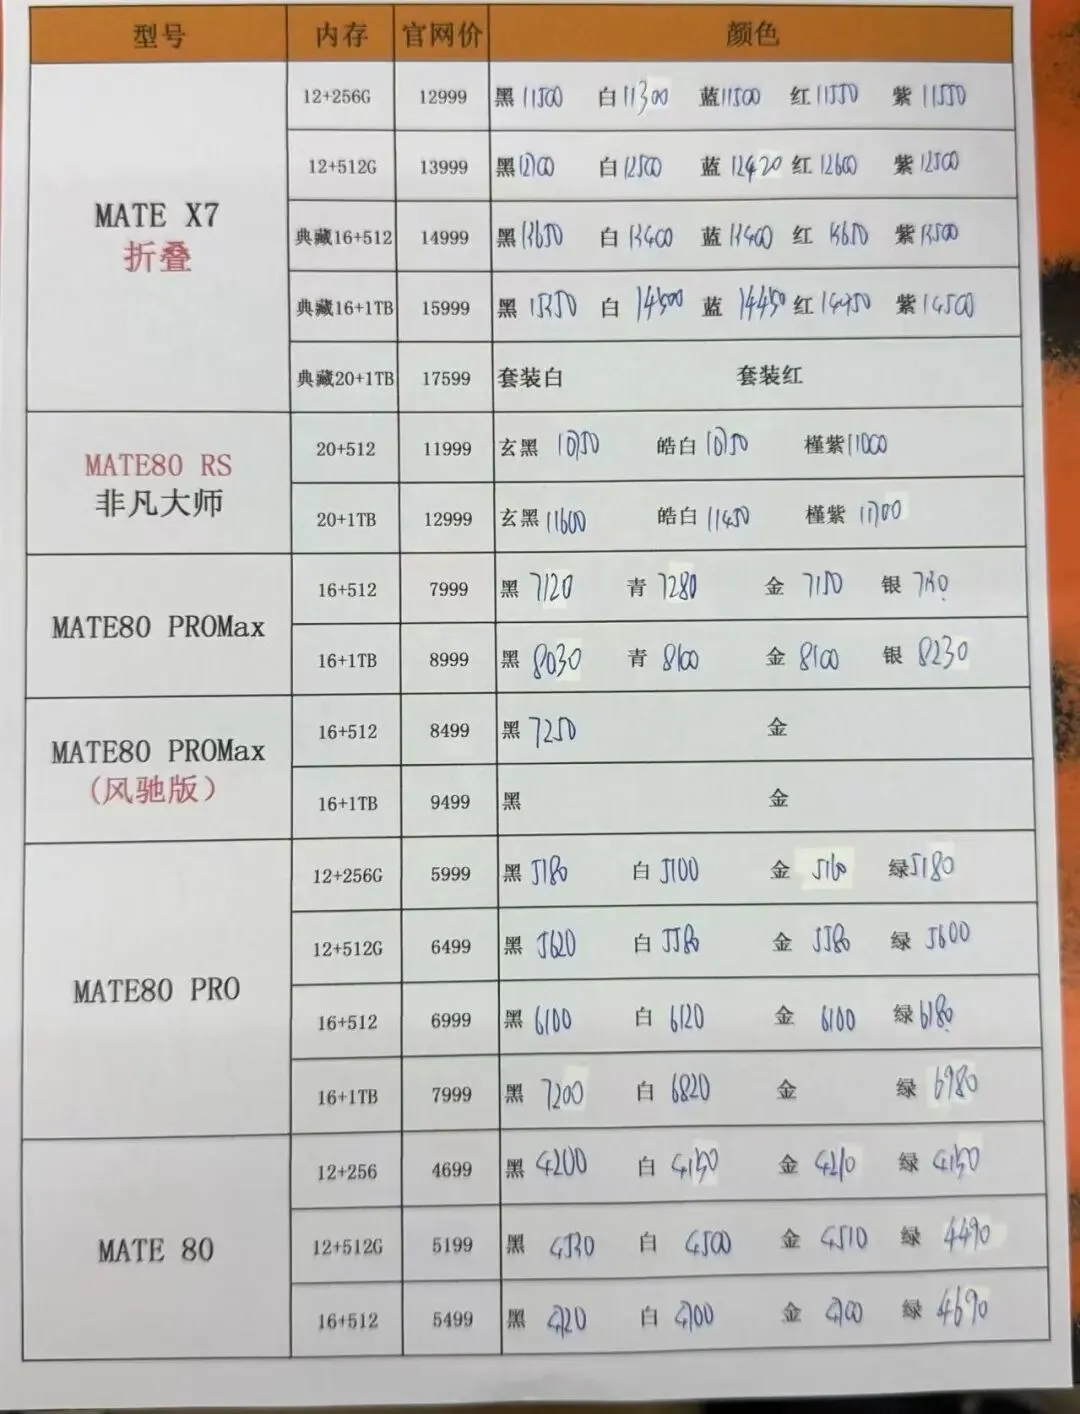 型号 内存 官网价 颜色
MATE X7
折叠
12+256G 12999 黑 11500 白 11300 蓝 11500 红 11550 紫 11550
12+512G 13999 黑 12700 白 12500 蓝 12420 红 12600 紫 12500
典藏16+512 14999 黑 13650 白 13400 蓝 13400 红 13650 紫 13500
典藏16+1TB 15999 黑 白 14500 蓝 14450 红 紫 14500
典藏20+1TB 17599 套装白 套装红
MATE80 RS
非凡大师
20+512 11999 玄黑 10750 皓白 10750 槿紫 11000
20+1TB 12999 玄黑 11600 皓白 11450 槿紫 11700
MATE80 PROMax
16+512 7999 黑 7120 青 7280 金 7150 银
16+1TB 8999 黑 8030 青 8100 金 8100 银 8230
MATE80 PROMax
(风驰版)
16+512 8499 黑 7250 金
16+1TB 9499 黑 金
MATE80 PRO
12+256G 5999 黑 5180 白 5100 金 5160 绿 5180
12+512G 6499 黑 5620 白 5580 金 5580 绿 5600
16+512 6999 黑 6100 白 6120 金 6100 绿 6180
16+1TB 7999 黑 7200 白 6820 金 绿 6980
MATE 80
12+256 4699 黑 4200 白 金 4210 绿
12+512G 5199 黑 4530 白 4500 金 4510 绿 4490
16+512 5499 黑 4720 白 4700 金 4700 绿 4690